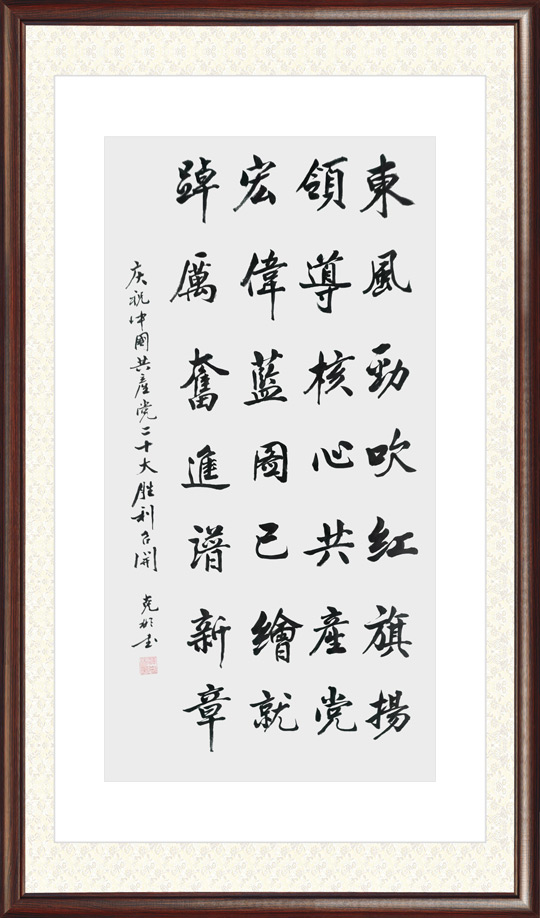 東風勁吹红旗揚
領導核心共産党
宏偉藍圖已繪就
踔厲奮進谱新章
庆祝中國共産党二十大胜利召開
克彬书